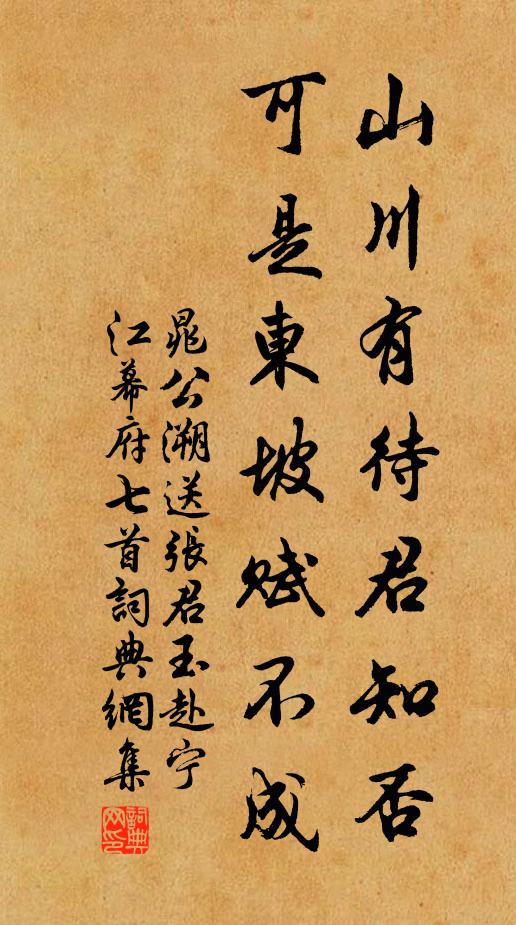 山川有待君知否
可是東坡賦不成
晁公溯送張君玉赴宁
江幕府七首詞典網集
詞典
网印